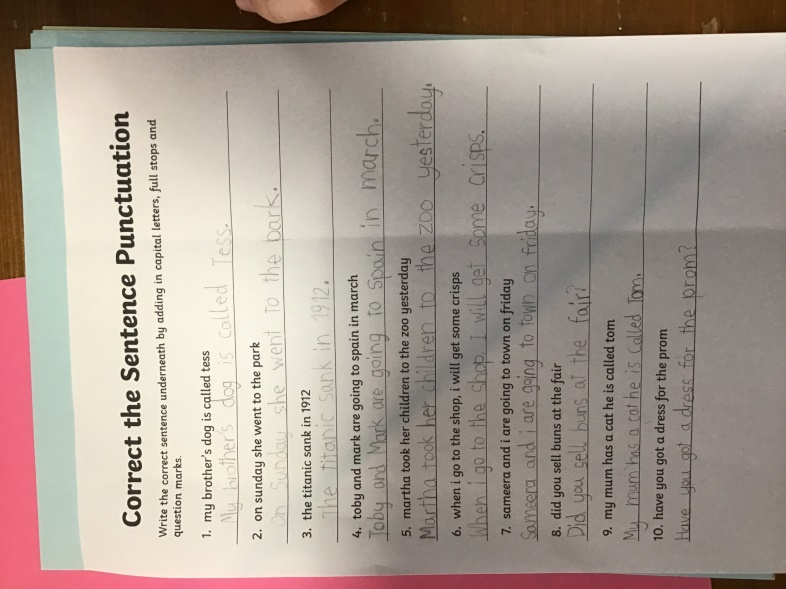 Correct the Sentence Punctuation
Write the correct sentence underneath by adding in capital letters, full stops and
question marks.
1. my brother's dog is called tess
My brother's dog is called Tess.
2. on sunday she went to the park
On Sunday she went to the park.
3. the titanic sank in 1912
The titanic sank in 1912.
4. toby and mark are going to spain in march
Toby and Mark are going to Spain in march.
5. martha took her children to the zoo yesterday
Martha took her children to the zoo yesterday.
6. when i go to the shop, i will get some crisps
When i go to the shop, I will get some crisps.
7. sameera and i are going to town on friday
Sameera and i are going to town on friday.
8. did you sell buns at the fair
Did you sell buns at the fair?
9. my mum has a cat he is called tom
My mum has a cat he is called Tom.
10. have you got a dress for the prom
Have you got a dress for the prom?